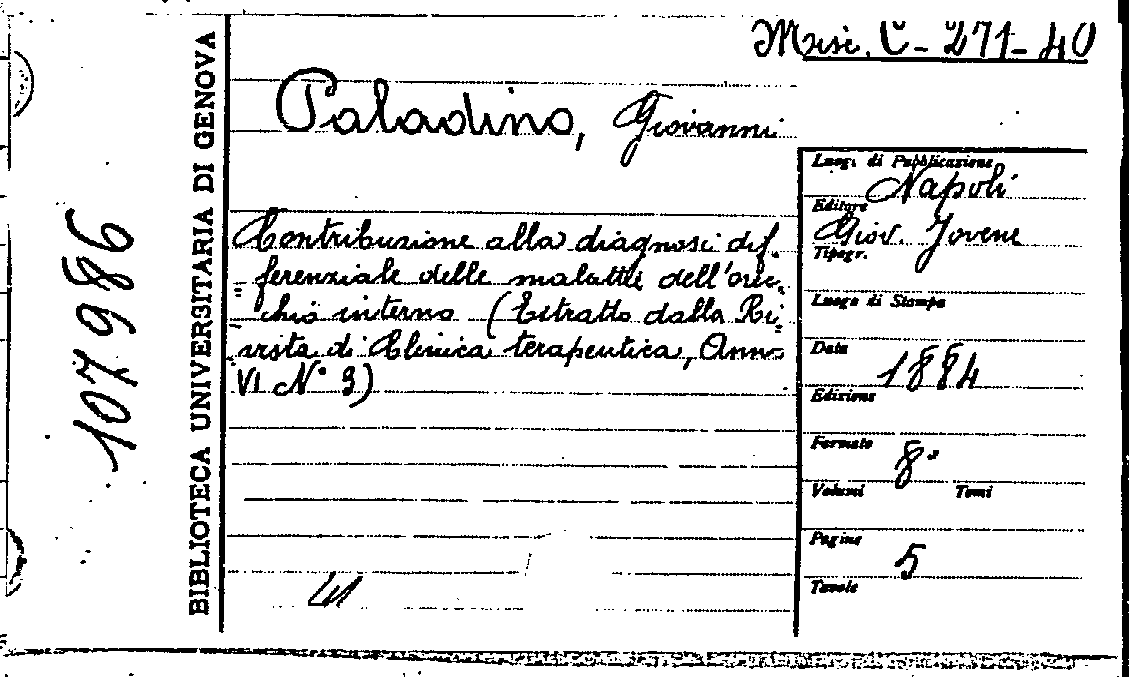 Misc. C - 271 - 40
Paladino, Giovanni
BIBLIOTECA UNIVERSITARIA DI GENOVA
107986
Contribuzione alla diagnosi dif-
ferenziale delle malattie dell'orec-
chio interno (Estratto dalla Ri-
vista di Clinica terapeutica, Anno
VI N° 9)
Luogo di Pubblicazione
Napoli
Editore
Giov. Jovene
Tipogr.
Luogo di Stampa
Data
1884
Edizione
Formato
8°
Volumi Tomi
Pagine
5
Tavole